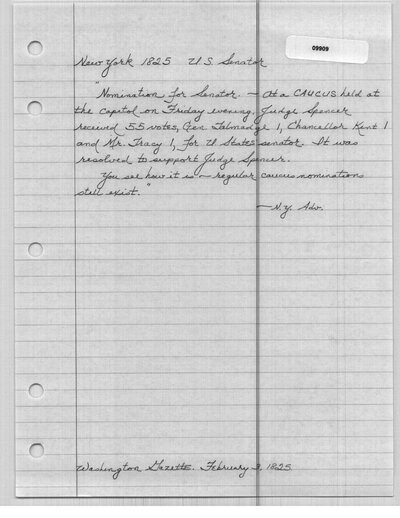 09909
New York 1825 U.S. Senator
"Nomination for Senator. — At a CAUCUS held at
the capitol on Friday evening, Judge Spencer
received 55 votes, Gen. Talmadge 1, Chancellor Kent 1
and Mr. Tracy 1, for U States senator. It was
resolved to support Judge Spencer.
You see how it is — regular caucus nominations
still exist."
— N.Y. Adv.
Washington Gazette. February 3, 1825